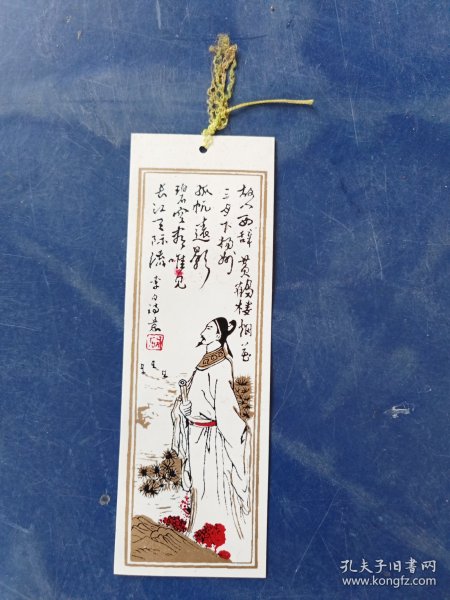 故人西辞黄鹤楼烟花
三月下扬州
孤帆远影
碧空尽唯见
长江天际流 李白诗意
孔夫子旧书网
www.kongfz.com